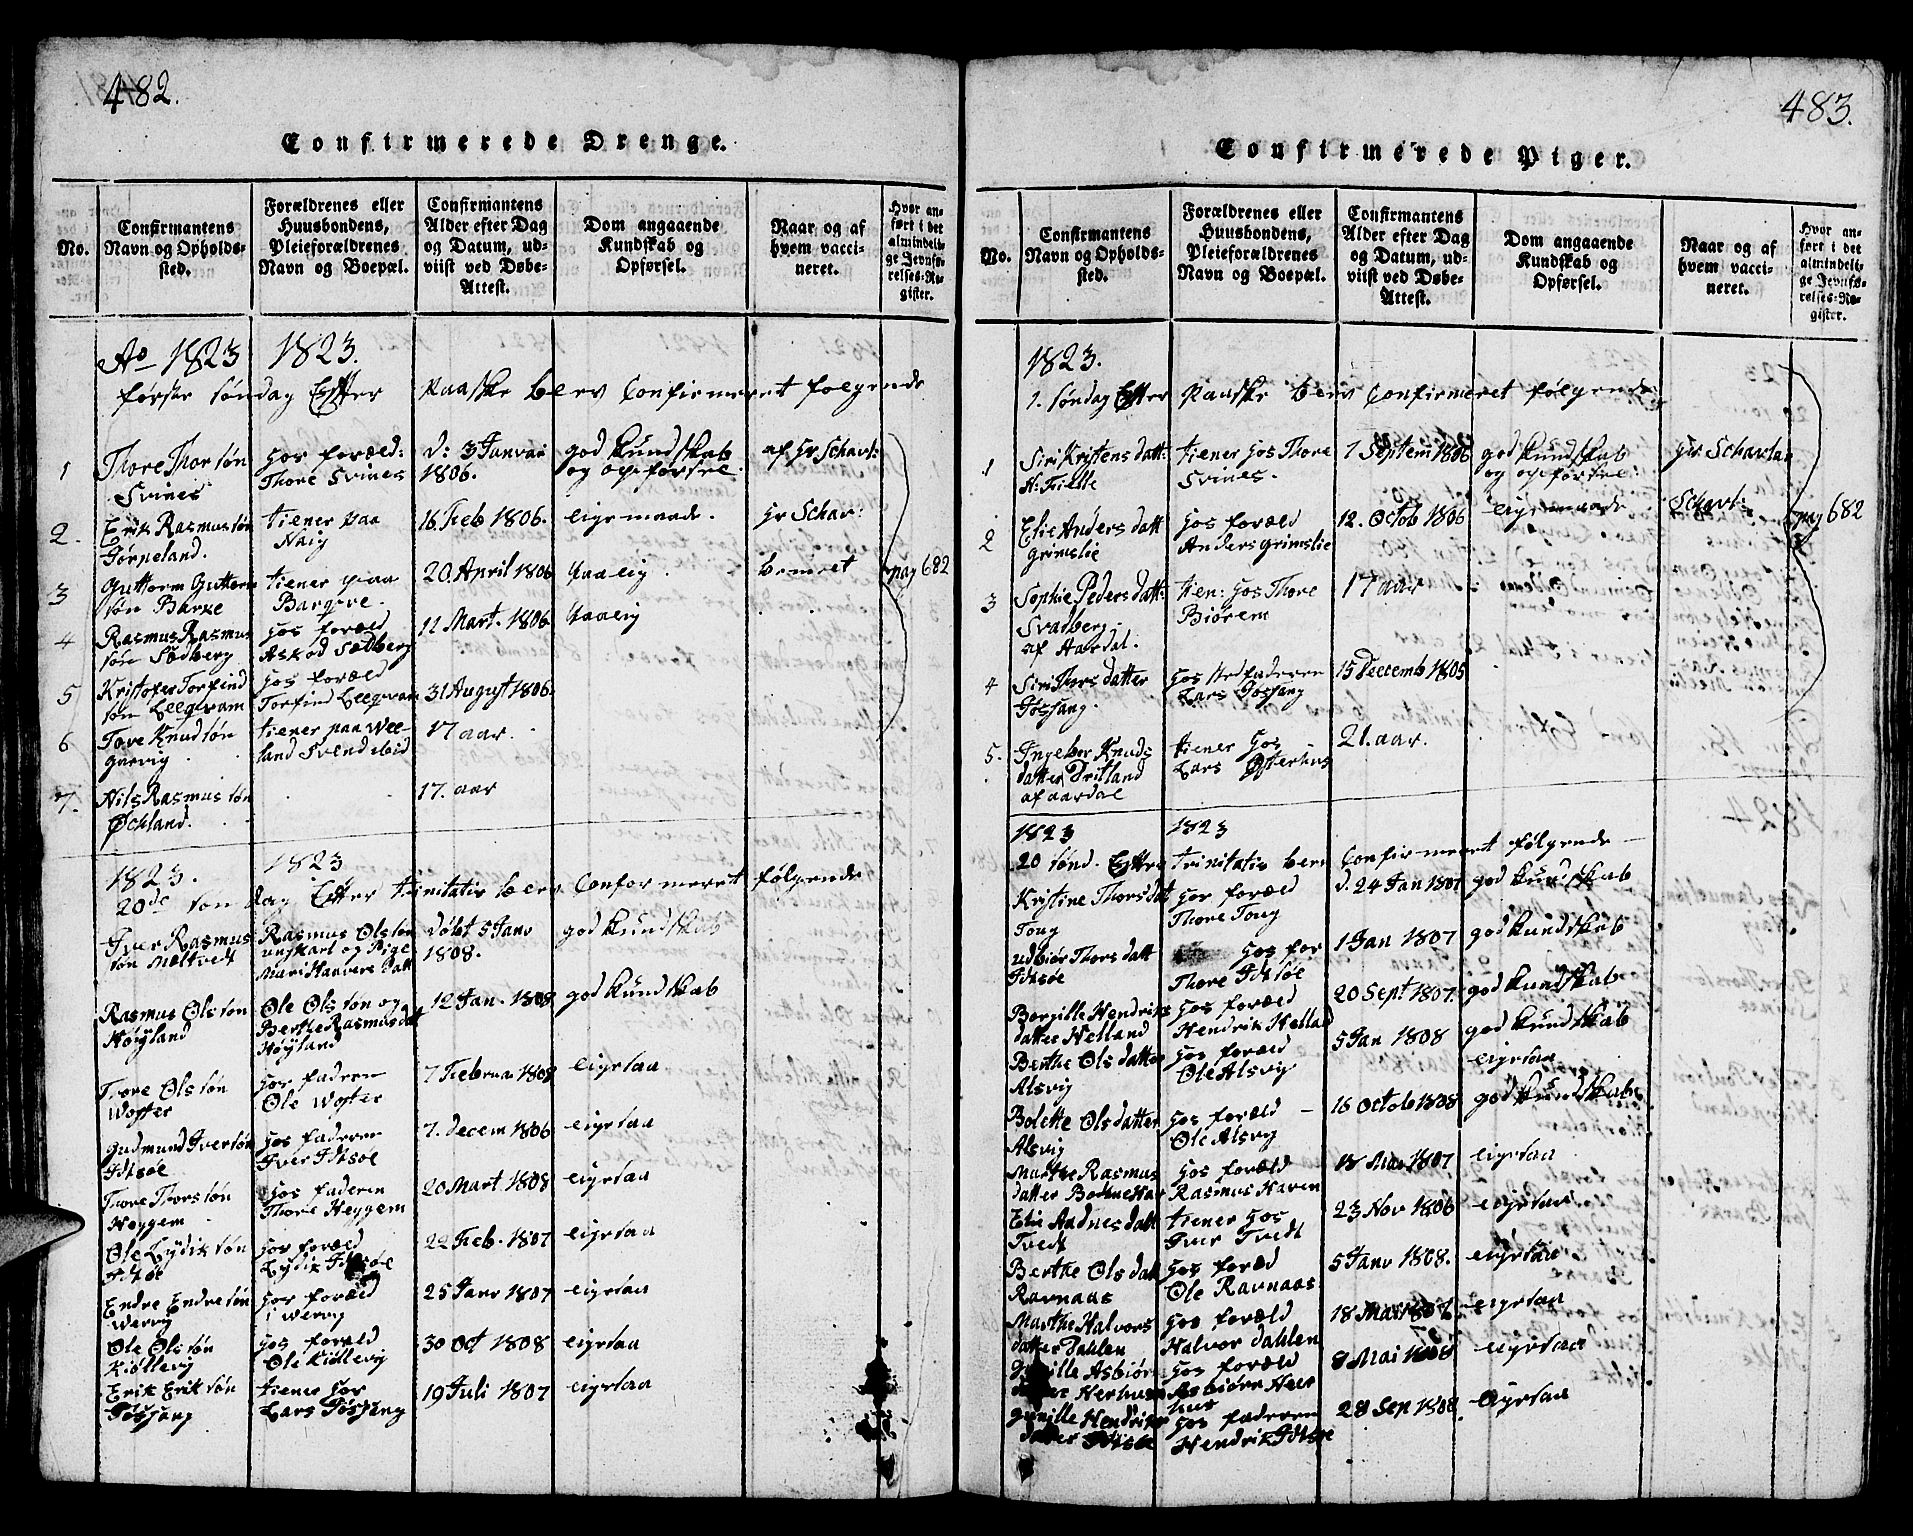 482.
Confirmerede Drenge.
No.
Confirmantens Navn og Opholds-sted.
Forældrenes eller Huusbondens, Pleieforældrenes Navn og Boepæl.
Confirmantens Alder efter Dag og Datum, ud-viist ved Døbe-Attest.
Dom angaaende Kundskab og Opførsel.
Naar og af hvem vacci-neret.
Hvor an-ført i det almindeli-ge Jevnfø-relses-Re-gister.
Ao 1823 1823.
første søndag Efter Paaske blev Confirmeret følgende
1 Thore Thorsøn Svines hos foræld: Thore Svines d: 3 Januar 1806. god kundskab og opførsel af Hr Schavl:
2. Erik Rasmussøn Tørneland. tiener paa Naig 16 Feb 1806. ligemaade. Hr Schav:
3 Guttorm Guttormsøn Barke tiener paa Bargeve 20. April 1806 Maalig bemeret pag 682
4 Rasmus Rasmussøn Sødberg hos foræld Askod Sødberg 11 Mart. 1806 Maalig
5 Kristofer Torfindsøn Leegvam hos foræld Torfind Leegvam 31 August 1806.
6 Tore Knudsøn Gurvig tiener paa Weeland Svendebid 17 aar.
7. Nils Rasmussøn Øckland. 17. aar
1823. 1823
20de søndag Efter trinitatis blev Conformeret følgende
Iver Rasmussøn Meltvedt Rasmus Olssøn ungkarl og Pige Mari Hanvers Datt døbt 5 Janv 1808. god kundskab
Rasmus Olssøn Høyland Ole Olssøn og Berthe Rasmusdat Høyland 12 Jan. 1808 god kundskab
Tore Olssøn Woster hos faderen Ole Woster 7 Februa 1808 ligesaa
Gudmund Iversøn Idtsøe hos faderen Iver Idtsøe 7. decem 1806 ligesaa
Thore Thorssøn Heggem hos faderen Thore Heggem 20 Mart 1808 ligesaa
Ole Lydiksøn Idtsøe hos foræld Lydik Idtsøe 22 Feb. 1807 ligesaa
Endre Endresøn Wervig hos foræld i Wervig 25 Janv 1807 ligesaa
Ole Olssøn Kiøllevig hos foræld Ole Kiøllevig 30 Oct 1808 ligesaa
Erik Eriksøn Føssang tiener hos Lars Føssang 19 Juli 1807 ligesaa
483.
Confirmerede Piger.
No.
Confirmantens Navn og Opholds-sted.
Forældrenes eller Huusbondens, Pleieforældrenes Navn og Boepæl.
Confirmantens Alder efter Dag og Datum, ud-viist ved Døbe-Attest.
Dom angaaende Kundskab og Opførsel.
Naar og af hvem vacci-neret.
Hvor an-ført i det almindeli-ge Jevnfø-relses-Re-gister.
1823.
1. søndag Efter Paaske blev Confirmeret følgende
1 Siri Kristensdatt: tiener hos Thore Svines. 1 Septem 1806 god kundskab og opførsel Hr Schavlan
2 Elie Andersdatt Grimslie hos foræld Anders Grimslie 12. Octob 1806 ligemaade Schavl: pag 682
3 Sophie Pedersdatt: Svadberg af Aardal. tien: hos Thore Biørem 17 aar
4 Siri Thorsdatter Føssang. hos Stedfaderen Lars Føssang 15 Decemb 1805
5. Ingebor Knudsdatter Dritland af aardal tiener hos Lars Østerhus 21. aar.
1823 1823
20 sønd. Efter trinitatis blev Confirmeret følgende
Kristine Thorsdat Toug hos foræld Thore Toug d. 24 Jan 1807 god kundskab
Udbiør Thorsdatt Idtsøe hos for Thore Idtsøe 1 Jan 1807 god kundskab
Borgille Hendriksdatter Helland hos foræld Hendrik Helland 20 Sept 1807. god kundskab
Berthe Olsdatter Alsvig hos foræld Ole Alsvig 5 Jan 1808 god kundskab ligesaa
Bolette Olsdatter Alsvig hos foræld Ole Alsvig 16 Octob 1808 god kundskab
Marthe Rasmusdatter hos foræld Rasmus Haven 18 Mai 1807 ligesaa
Elie Andnesdatt Tvedt tiener hos Iver Tvedt 23 Nov 1806 ligesaa
Berthe Olsdatt Ravnaas hos foræld Ole Ravnaas 5 Janv 1808. ligesaa
Marthe Halvorsdatter Dahlen hos foræld Halvor Dahlen 18 ligesaa
Asbiørn hos foræld Asbiørn Heerhus 8 Mai 1808 ligesaa
Gunille Hendriksdatter Idtsøe hos faderen Hendrik Idtsøe 28 Sep 1808. ligesaa